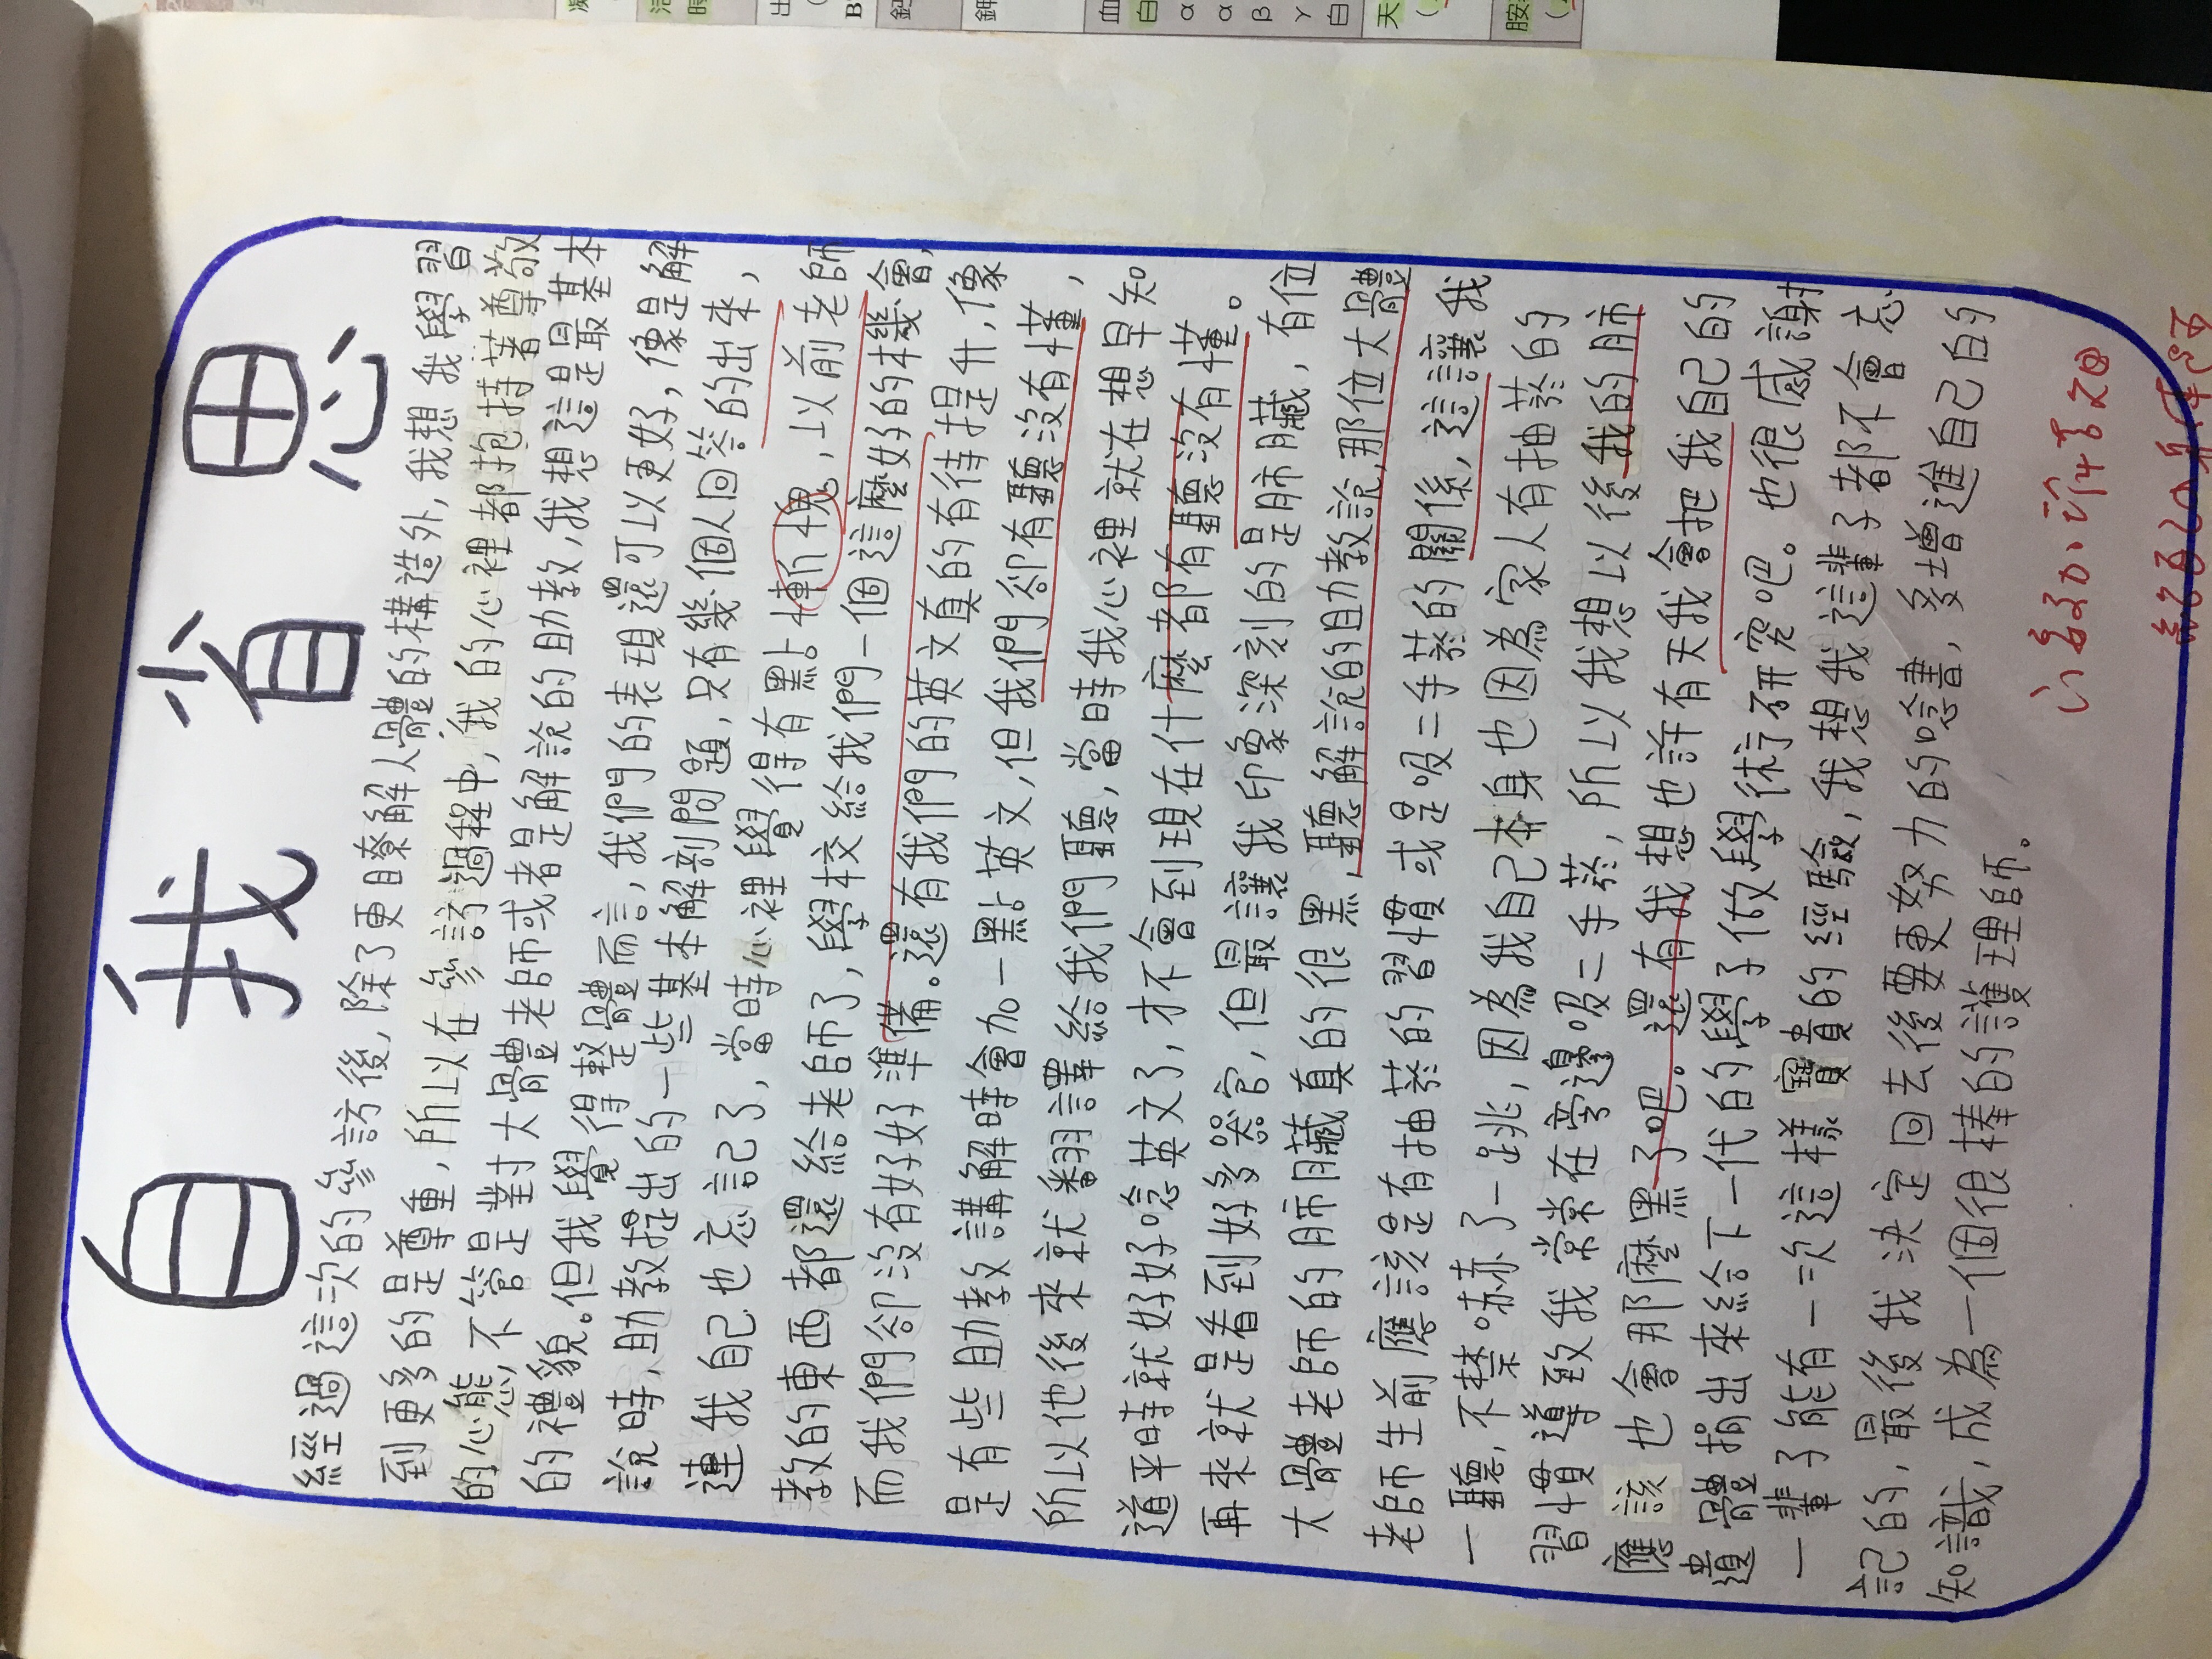 自我省思
經過這次的參訪後，除了更瞭解人體的構造外，我想我學習
到更多的是尊重，所以在參訪過程中，我的心裡都抱持著尊敬
的心態，不管是對大體老師或者是解說的助教，我想這是最基本
的禮貌。但我覺得整體而言，我們的表現還可以更好，像是解
說時，助教提出的一些基本解剖問題，只有幾個人回答的出來，
連我自己也忘記了，當時心裡覺得有點慚愧，以前老師
教的東西都還給老師了，學校給我們一個這麼好的機會，
而我們卻沒有好好準備。還有我們的英文真的有待提升，像
是有些助教講解時會加一點英文，但我們卻有聽沒有懂，
所以他後來就翻譯給我們聽，當時我心裡就在想早知
道平時就好好唸英文了，才不會到現在什麼都有聽沒有懂。
再來就是看到好多器官，但最讓我印象深刻的是肺臟，有位
大體老師的肺臟真的很黑，聽解說的助教說，那位大體
老師生前應該是有抽菸的習慣或是吸二手菸的關係，這讓我
一聽，不禁嚇了一跳，因為我自己本身也因為家人有抽菸的
習慣導致我常常在旁邊吸二手菸，所以我想以後我的肺
應該也會那麼黑了吧。還有我想也許有天我會把我自己的
遺體捐出來給下一代的學子做學術研究吧。也很感謝
一輩子能有一次這樣寶貴的經驗，我想我這輩子都不會忘
記的，最後我決定回去後要更努力的唸書，多增進自己的
知識，成為一個很棒的護理師。